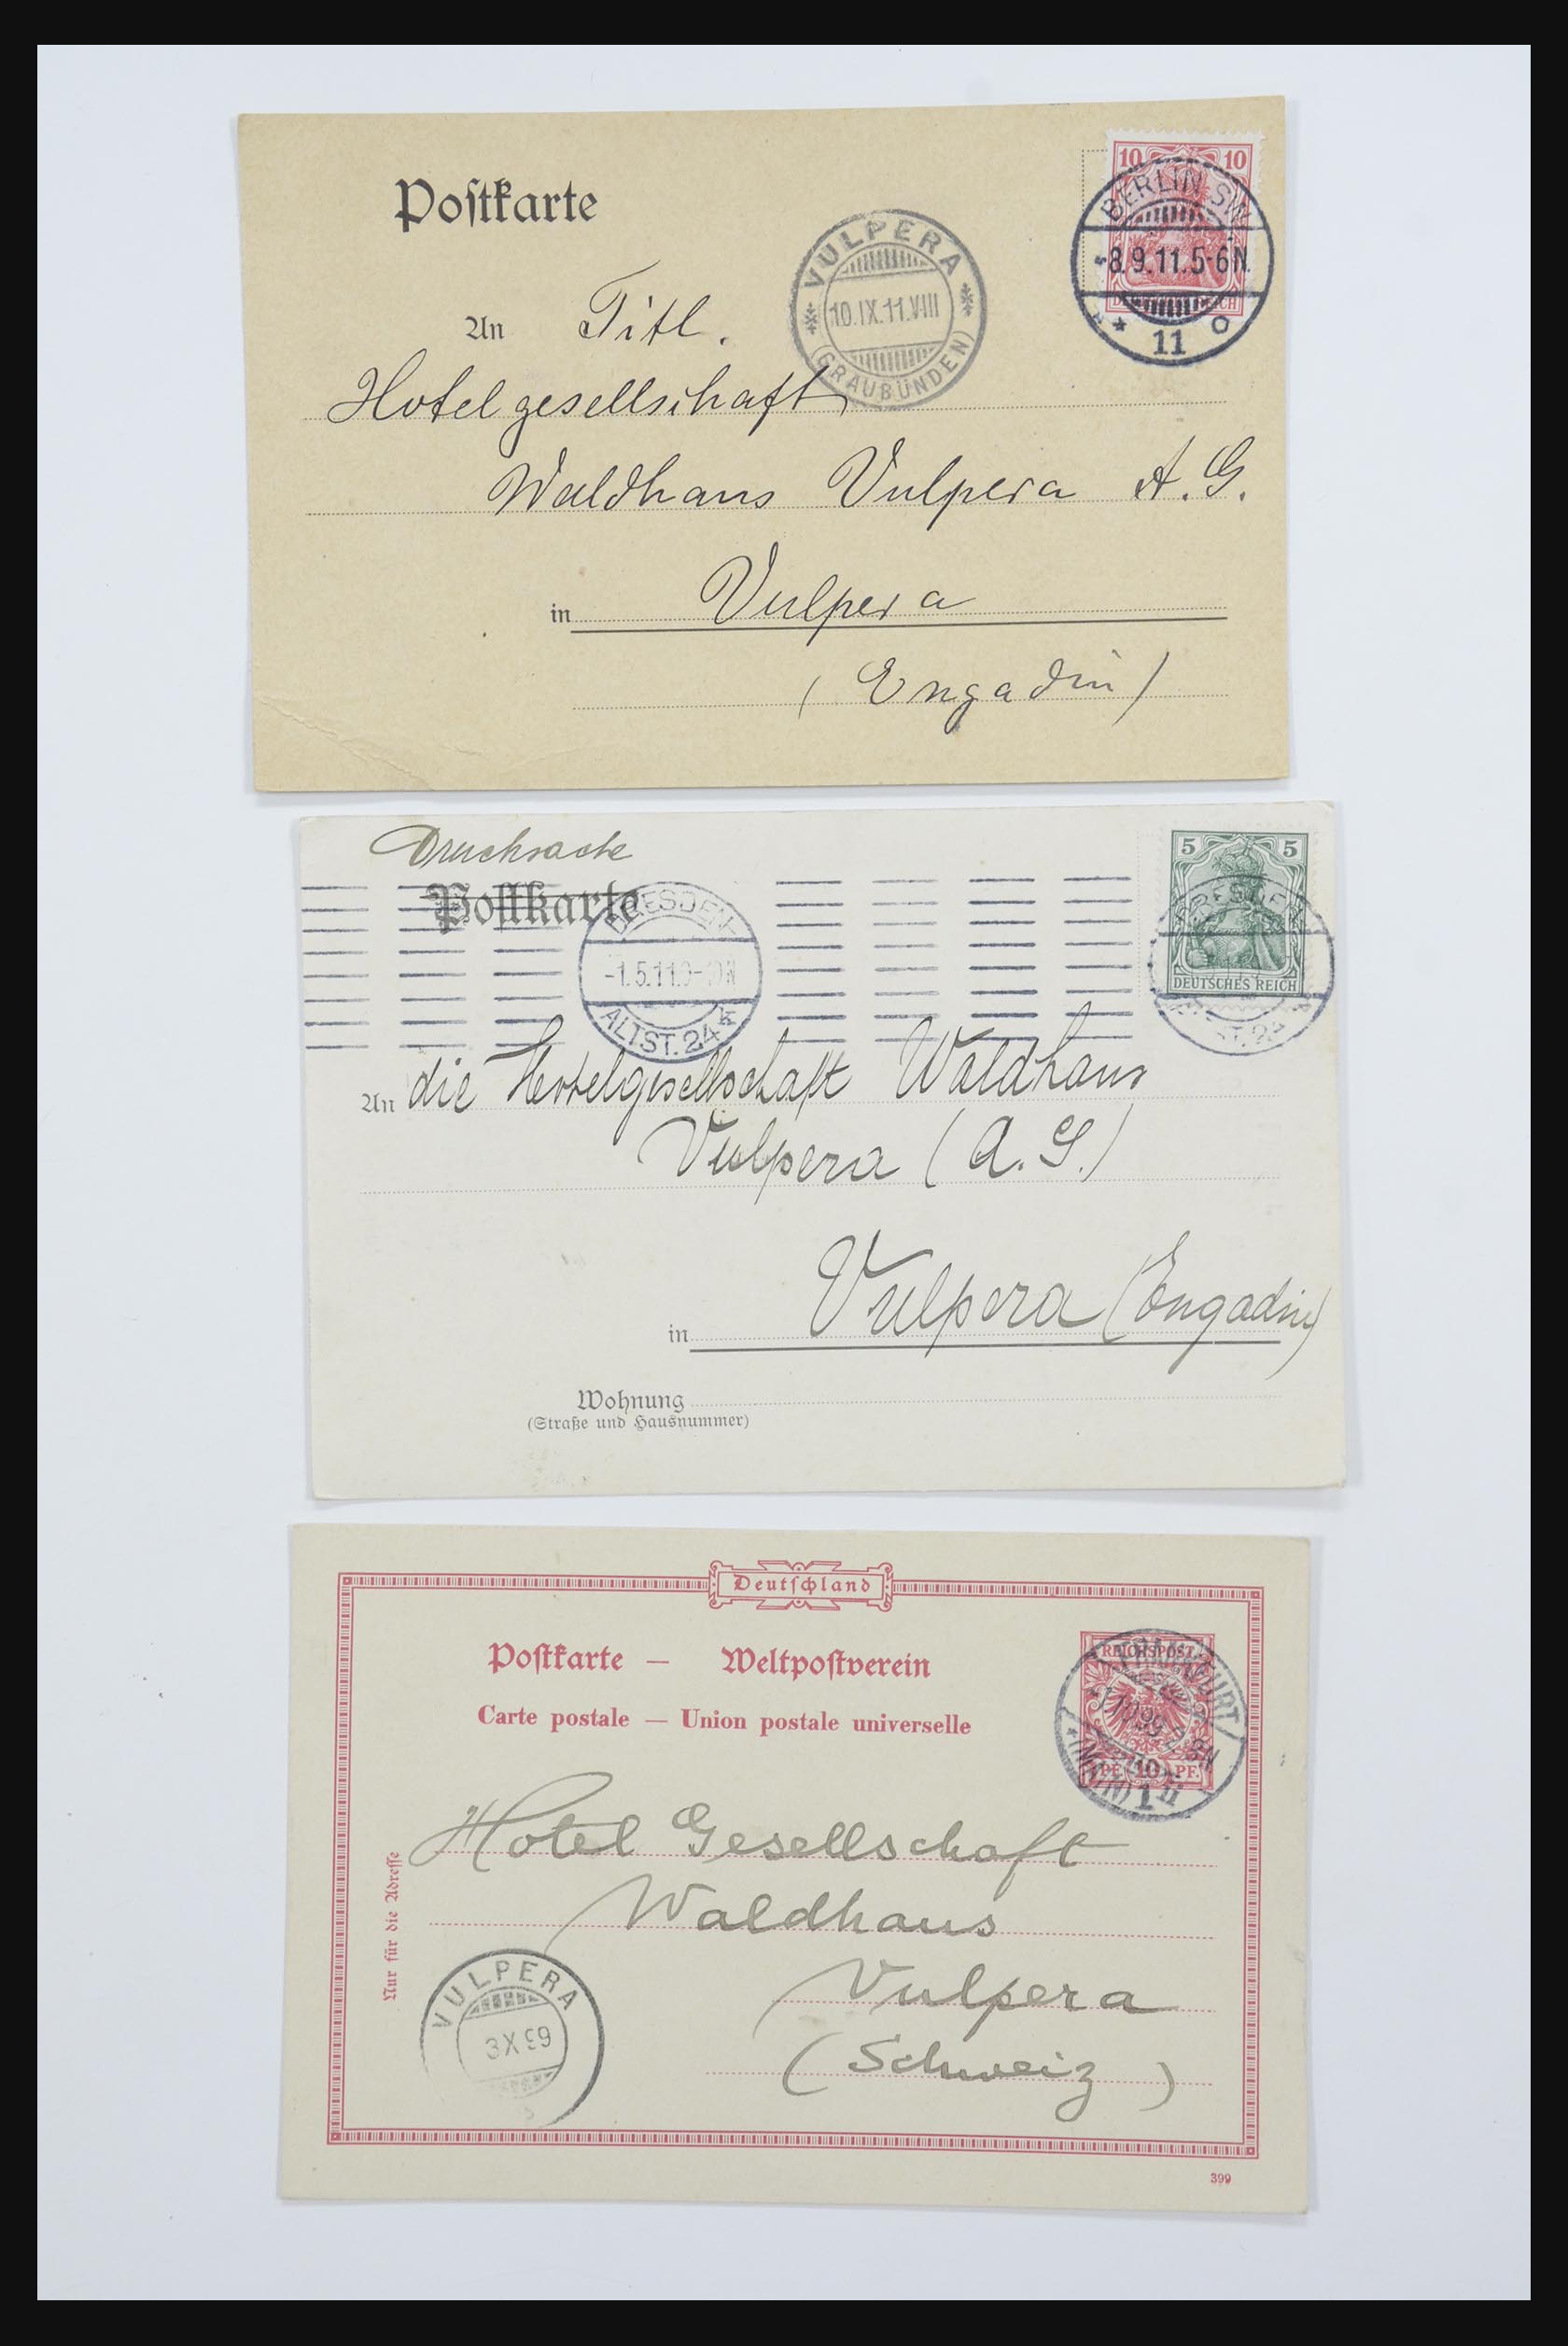 Postkarte
10 10
BERLIN SW
8.9.11.5-6N.
* 11 O
VULPERA
10.IX.11.VIII
(GRAUBÜNDEN)
An Titl.
Hotelgesellschaft
Waldhaus Vulpera A.G.
in Vulpera
(Engadin)
Drucksache
Postkarte
DRESDEN-
-1.5.11.
ALTST. 24
5 5
DEUTSCHES REICH
An die Hotelgesellschaft Waldhaus
Vulpera (A.G.)
in Vulpera (Engadin)
Wohnung
(Straße und Hausnummer)
Deutschland
Postkarte — Weltpostverein
Carte postale — Union postale universelle
REICHSPOST
10 PF.
FRANKFURT
(MAIN) 1
Nur für die Adresse
Hotel Gesellschaft
Waldhaus
Vulpera
(Schweiz)
VULPERA
3 X 99
399